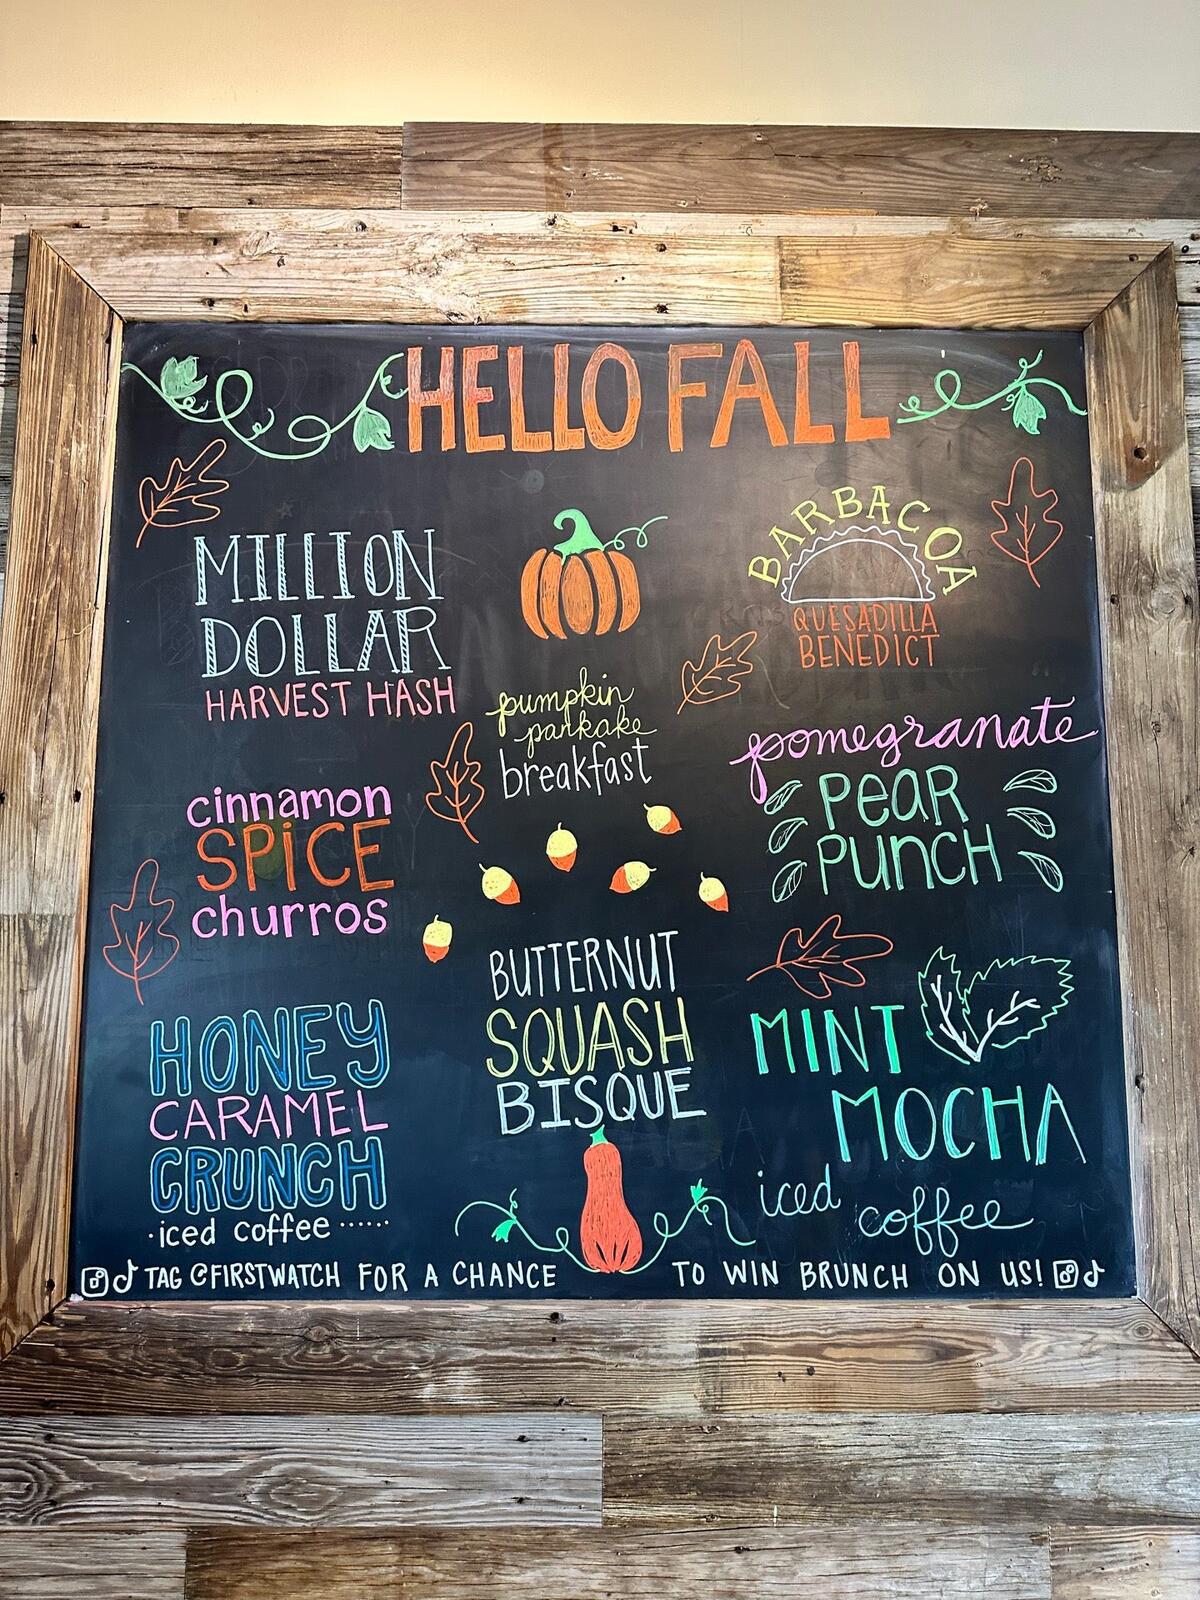 HELLO FALL
MILLION
DOLLAR
HARVEST HASH
BARBACOA
QUESADILLA
BENEDICT
pumpkin
pankake
breakfast
pomegranate
PEAR
PUNCH
cinnamon
SPiCE
churros
BUTTERNUT
SQUASH
BISQUE
MINT
MOCHA
iced coffee
HONEY
CARAMEL
CRUNCH
·iced coffee ······
TAG @FIRSTWATCH FOR A CHANCE TO WIN BRUNCH ON US!